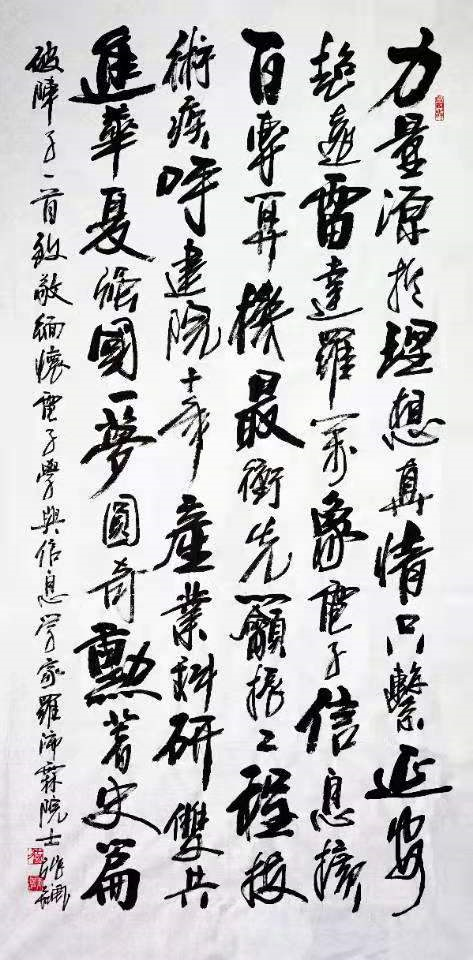 力量源於理想真情只繫延安
超遠雷達羅萬象電子信息擴
百專算機最衝先籲振工程技
術疾呼建院十年產業科研雙共
進華夏強國一夢圓奇勳著史篇
破陣子一首致敬緬懷電子學與信息學家羅沛霖院士